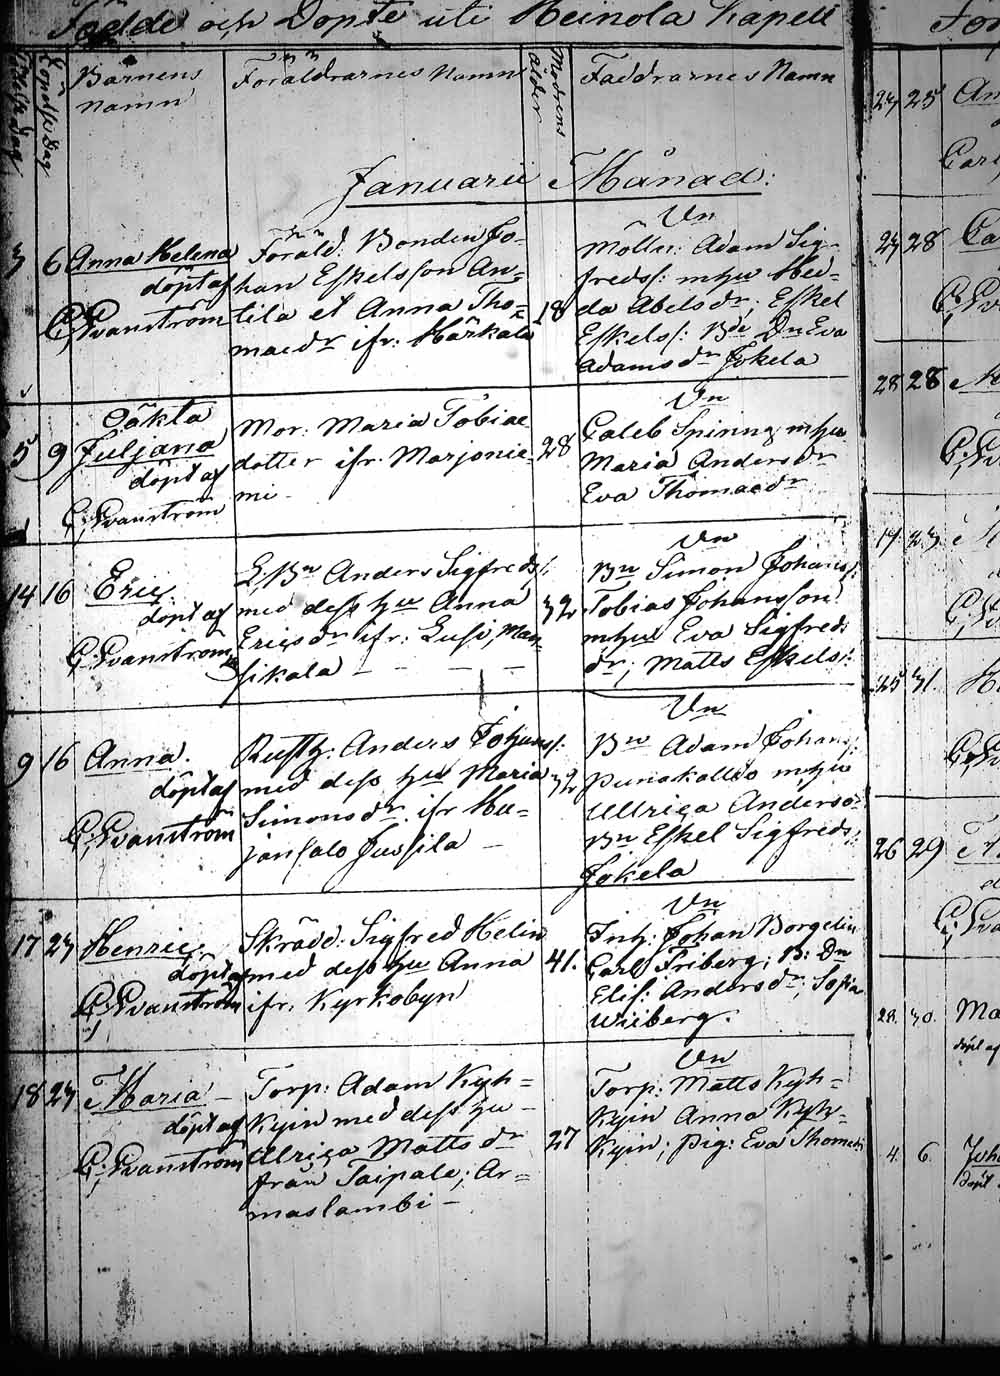 Födde och Döpte uti Heinola Kapell
Födelse Dag
Barnens
Namn
Föräldrarnes Namn
Modrens
ålder
Faddrarnes Namn
Januarii Månad:
3 6 Anna Helena
döpt af
C. Qvanström
Föräld: Bonden Jo=
han Eskelsson An=
tila et Anna Tho=
maedr ifr: Härkälä
18
Vn
Mölln: Adam Sig=
freds: m hu Hed=
da Abelsdr; Eskel
Eskels: Bde Dn Eva
Adamsdr Jokela
5 9 Oäkta
Juljana
döpt af
C. Qvanström
Mor: Maria Tobiae
dotter ifr. Marjonie=
mi -
28
Vn
Caleb Spinng m hu
Maria Andersdr
Eva Thomaedr
14 16 Eric.
döpt af
C. Qvanström
Bn Anders Sigfreds:
med dess hu Anna
Ericsdr ifr: Lusi, Man
sikala - - - -
32
Vn
Bn Simon Johans:
Tobias Johansson
m hu Eva Sigfreds
dr; Matts Eskels:
9 16 Anna.
döpt af
C. Qvanström
Rusth: Anders Johans:
med dess hu Maria
Simonsdr ifr Hu=
jansalo Jussila -
32
Vn
Bn Adam Johans:
Punakallio m hu
Ullrica Andersdr
Bn Eskel Sigfreds:
Jokela
17 23 Henric.
döpt af
C. Qvanström
Skrädd: Sigfred Helin
med dess hu Anna
ifr. Kyrkobyn
41.
Vn
Inh: Johan Borgelin
Carl Friberg; B: Dn
Elis: Andersdr; Sofia
Wiiberg.
18 23 Maria -
döpt af
C. Qvanström
Torp: Adam Kyh=
kyin med dess hu -
Ulrica Matts dr
från Taipale; Ar=
maslambi -
27
Vn
Torp: Matts Kyh=
kyin Anna Kyh=
kyin; Pig: Eva Thomedr
27 25 An
Carl
27 28 Ca
28 28
17 23
25 31.
26 29
28. 30. Ma
döpt af
4. 6. Joha
döpt